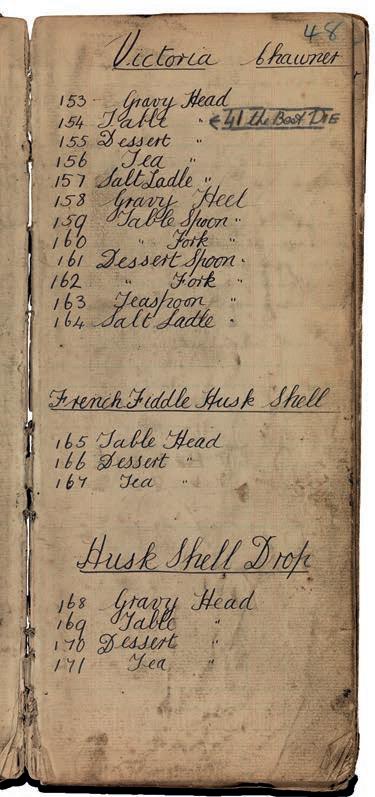 48
Victoria Chawner
153 Gravy Head
154 Table " ← 41 the Best DIE
155 Dessert "
156 Tea "
157 Salt Ladle "
158 Gravy Heel
159 Table Spoon "
160 " Fork "
161 Dessert Spoon "
162 " Fork "
163 Teaspoon "
164 Salt Ladle "
French Fiddle Husk Shell
165 Table Head
166 Dessert "
167 Tea "
Husk Shell Drop
168 Gravy Head
169 Table "
170 Dessert "
171 Tea "